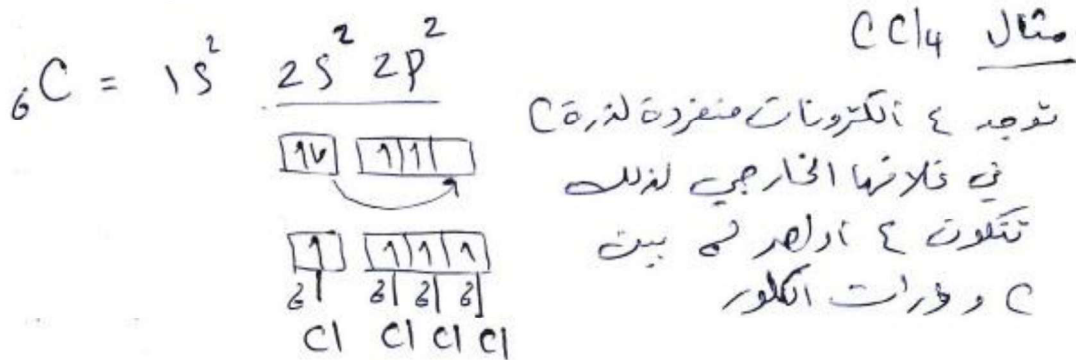 مثال CCl4
₆C = 1S² 2S² 2P²
توجد ٤ الكترونات منفردة لذرة C
في غلافها الخارجي لذلك
تتكون ٤ اواصر б بين
C وذرات الكلور
б б б б
Cl Cl Cl Cl